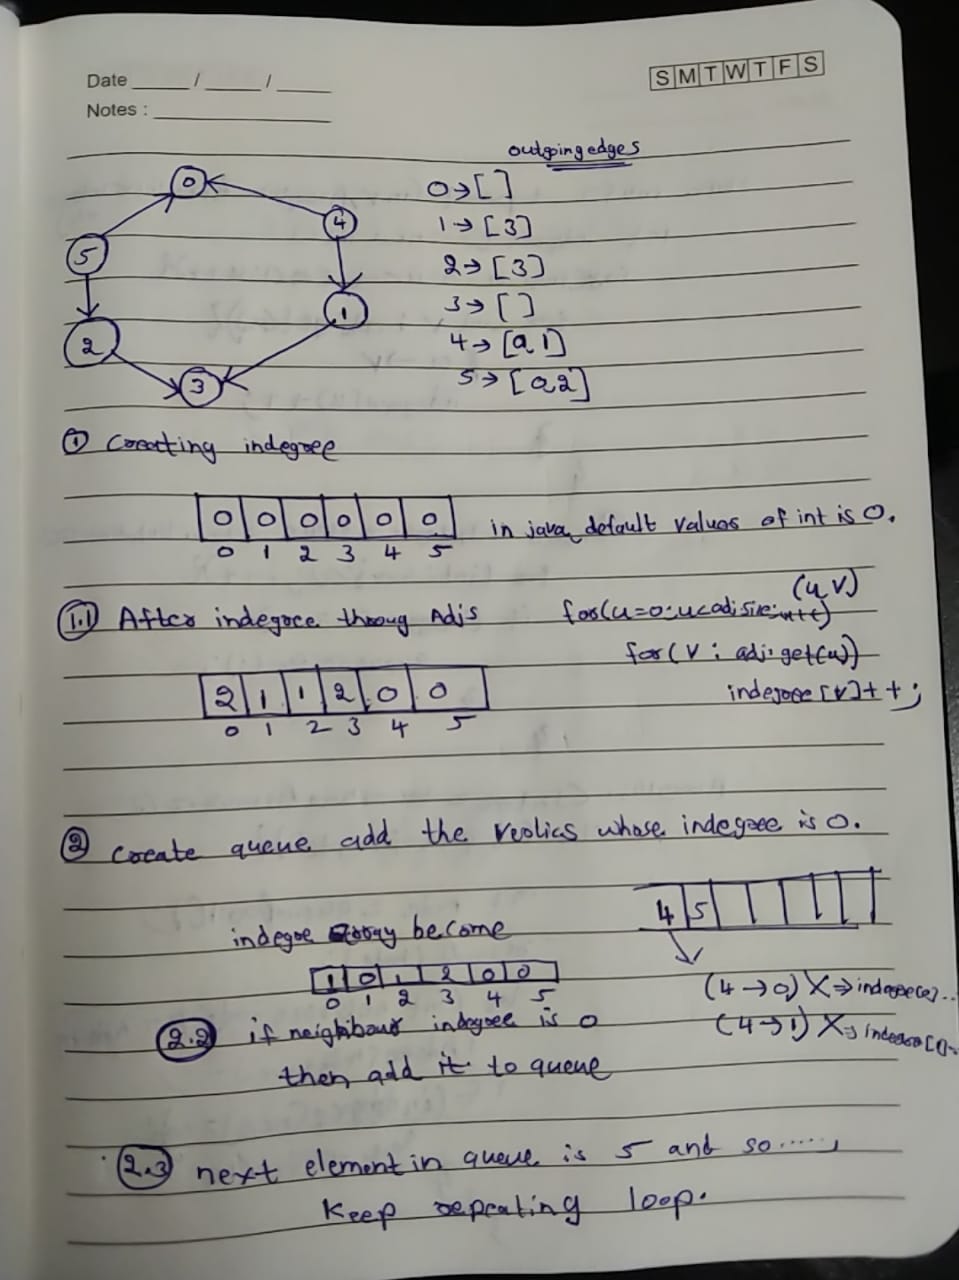 Date ____ / ____ / ____
S M T W T F S
Notes : ____
outgoing edges
0 → [ ]
1 → [3]
2 → [3]
3 → [ ]
4 → [0, 1]
5 → [0, 2]
0
4
5
1
2
3
① Creating indegree
0 0 0 0 0 0
0 1 2 3 4 5
in java, default values of int is 0.
(u, v)
1.1 After indegree throug Adjs
for(u=0; u<adj.size; u++)
for(v : adj.get(u))
indegree[v]++;
2 1 1 2 0 0
0 1 2 3 4 5
② Create queue add the vertics whose indegree is 0.
4 5
indegre array become
1 0 1 2 0 0
0 1 2 3 4 5
(4 → 0) X ⇒
(4 → 1) X ⇒
2.2 if neighbour indegree is 0
then add it to queue
2.3 next element in queue is 5 and so .....,
Keep repeating loop.